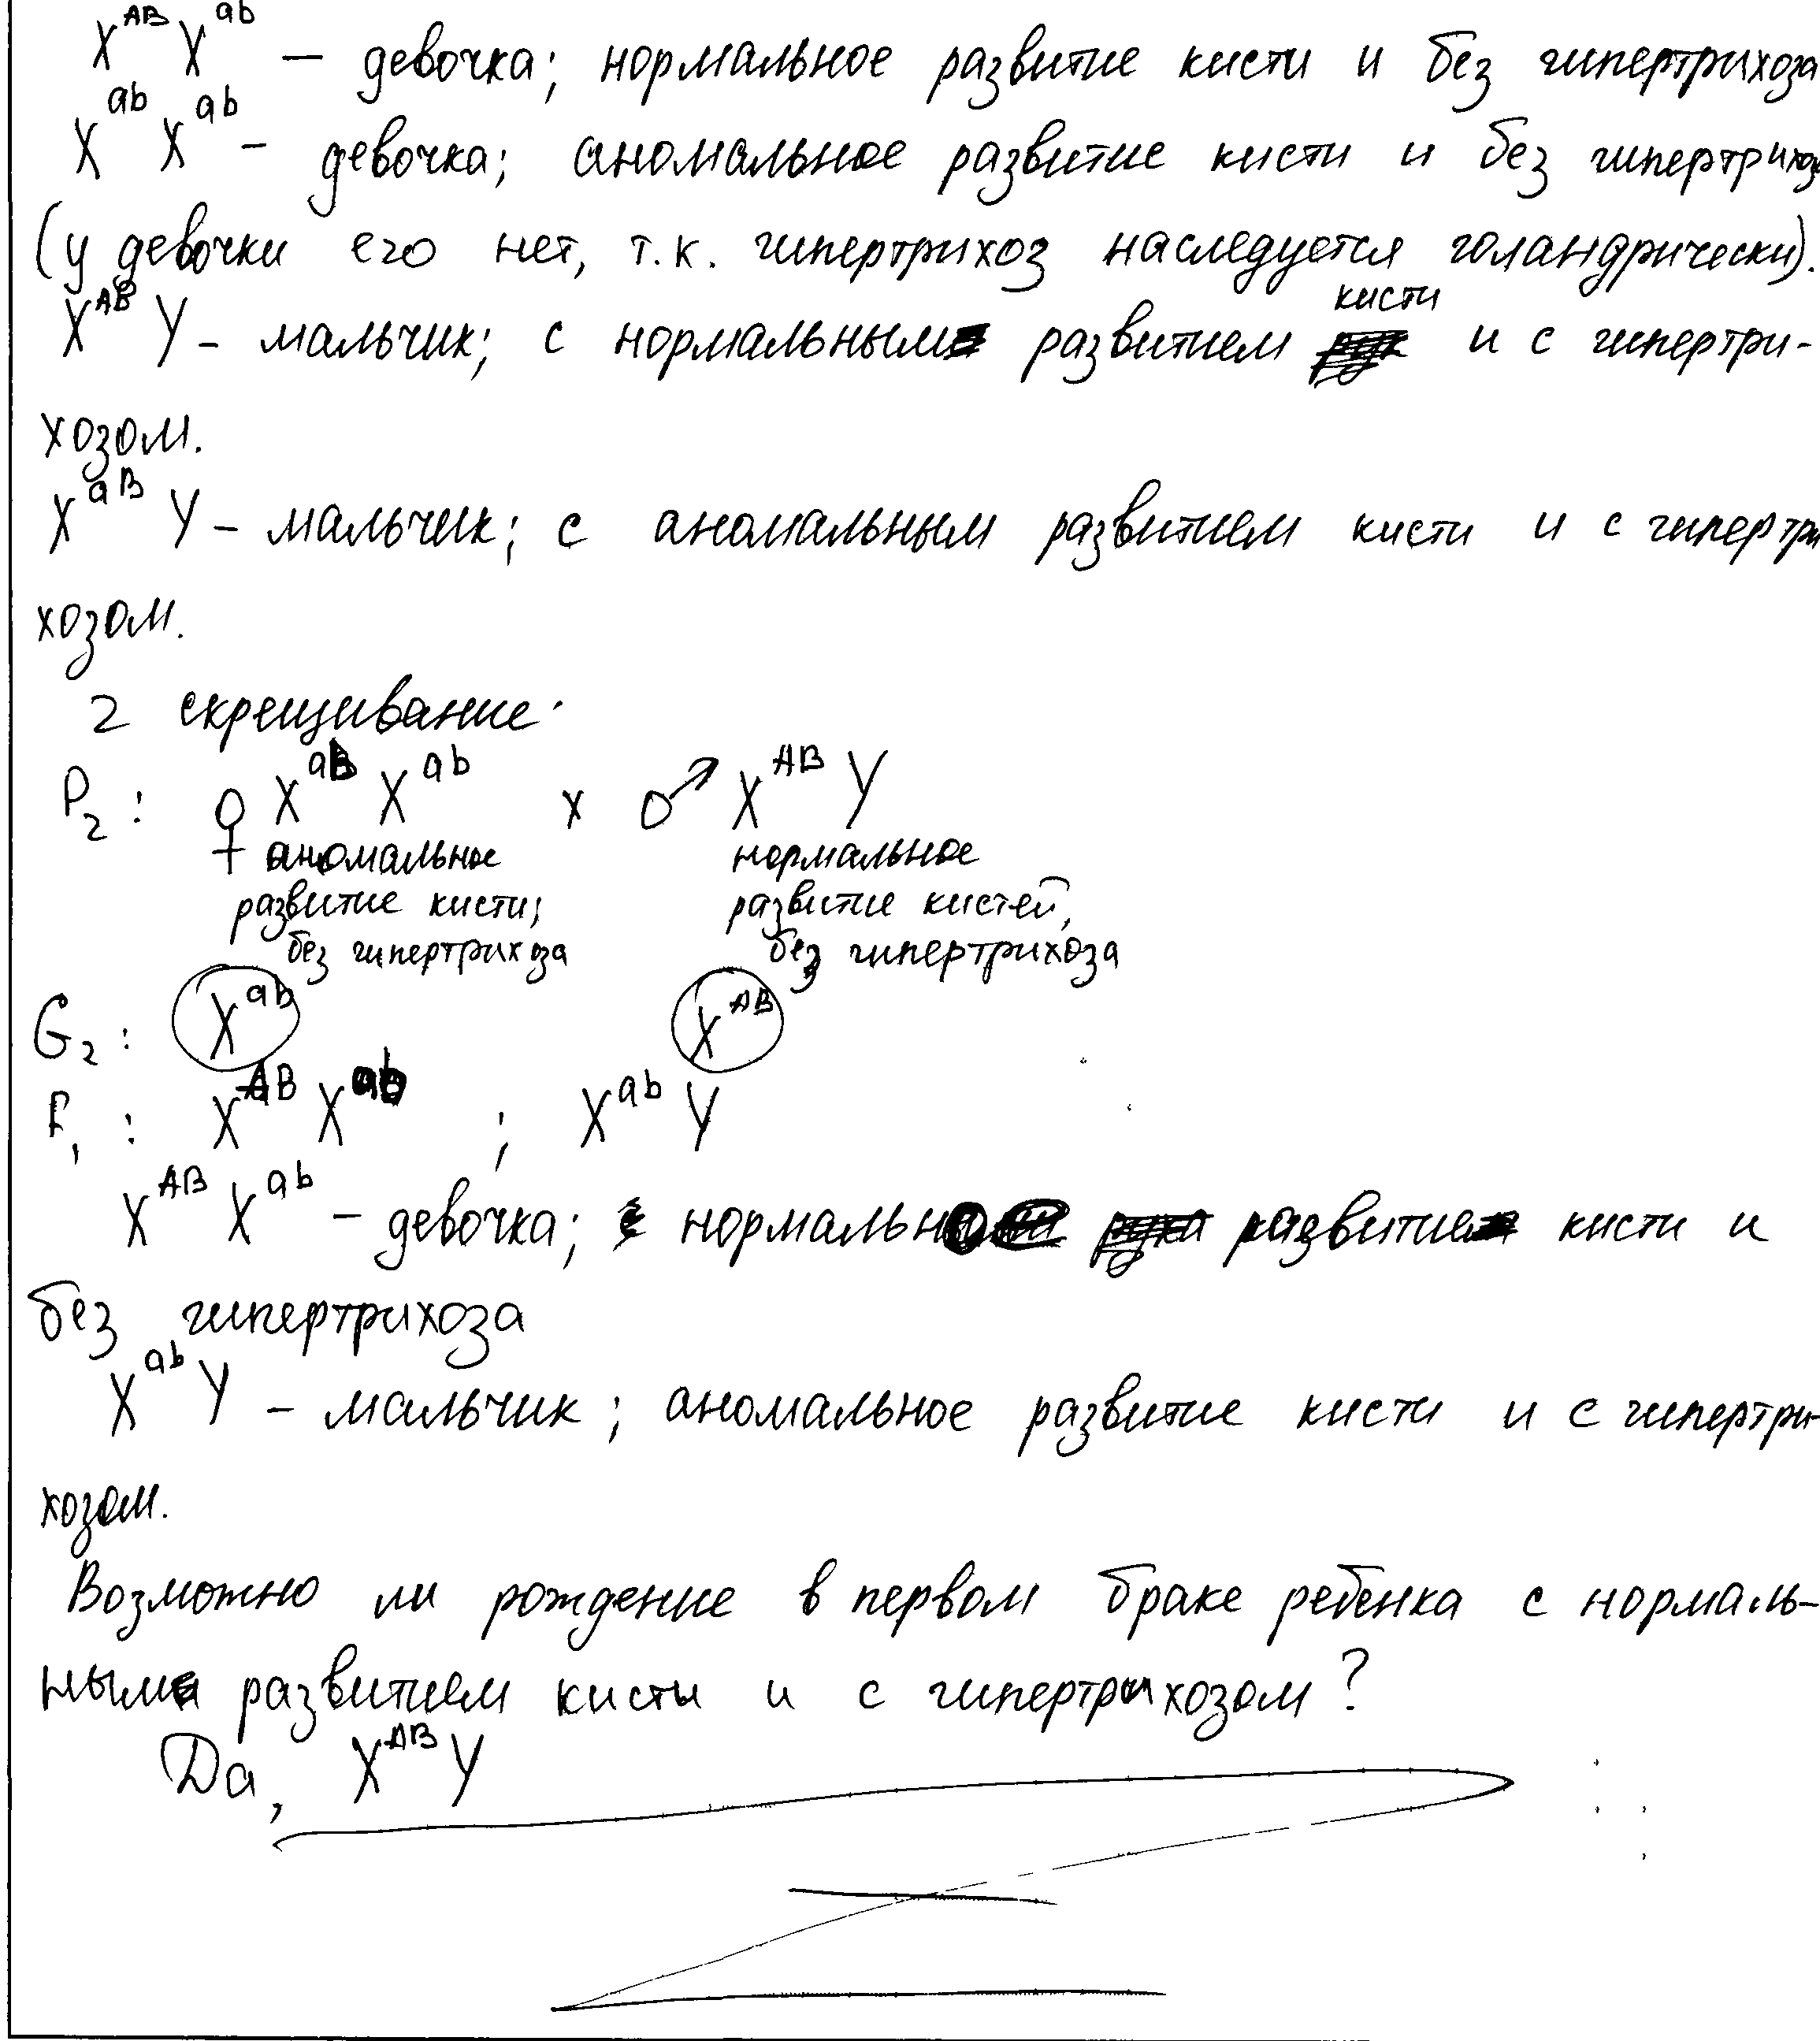 X^AB X^ab — девочка; нормальное развитие кисти и без гипертрихоза
X^ab X^ab – девочка; аномальное развитие кисти и без гипертрихоза
(у девочки его нет, т.к. гипертрихоз наследуется голандрически).
X^AB Y – мальчик; с нормальным развитием кисти и с гипертри-
хозом.
X^aB Y – мальчик; с аномальным развитием кисти и с гипертри
хозом.
2 скрещивание:
P₂: ♀ X^aB X^ab x ♂ X^AB Y
аномальное нормальное
развитие кисти; развитие кистей,
без гипертрихоза без гипертрихоза
G₂: X^ab X^AB
F₁: X^AB X^ab ; X^ab Y
X^AB X^ab – девочка; нормальное развитие кисти и
без гипертрихоза
X^ab Y – мальчик; аномальное развитие кисти и с гипертри-
хозом.
Возможно ли рождение в первом браке ребенка с нормаль-
ным развитием кисти и с гипертрихозом?
Да, X^AB Y